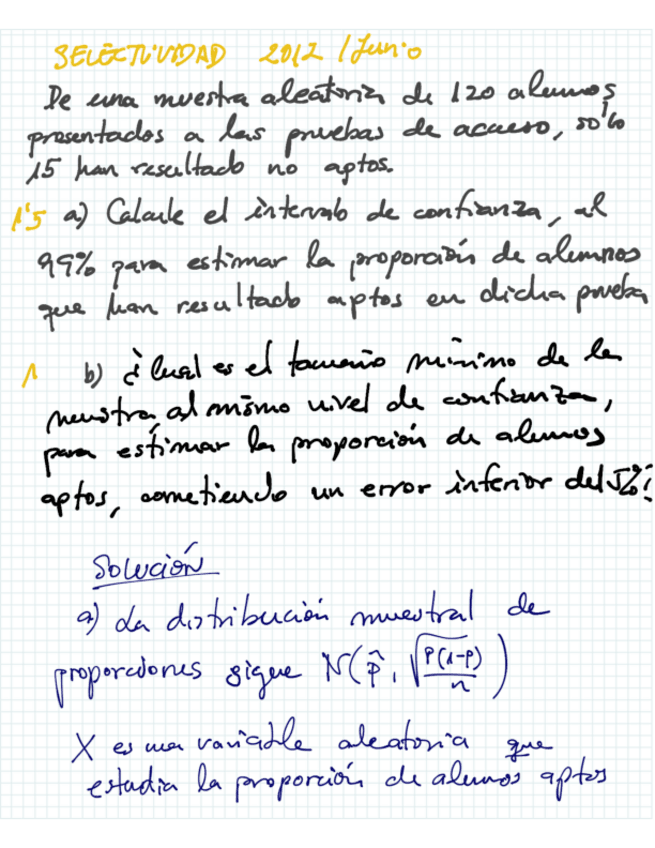 SELECTIVIDAD 2012 / Junio
De una muestra aleatoria de 120 alumnos
presentados a las pruebas de acceso, sólo
15 han resultado no aptos.
1'5 a) Calcule el intervalo de confianza, al
99% para estimar la proporción de alumnos
que han resultado aptos en dicha prueba
1 b) ¿Cual es el tamaño mínimo de la
muestra, al mismo nivel de confianza,
para estimar la proporción de alumnos
aptos, cometiendo un error inferior del 5%?
Solución
a) La distribución muestral de
proporciones sigue N(p̂, √(p(1-p)/n))
X es una variable aleatoria que
estudia la proporción de alumnos aptos